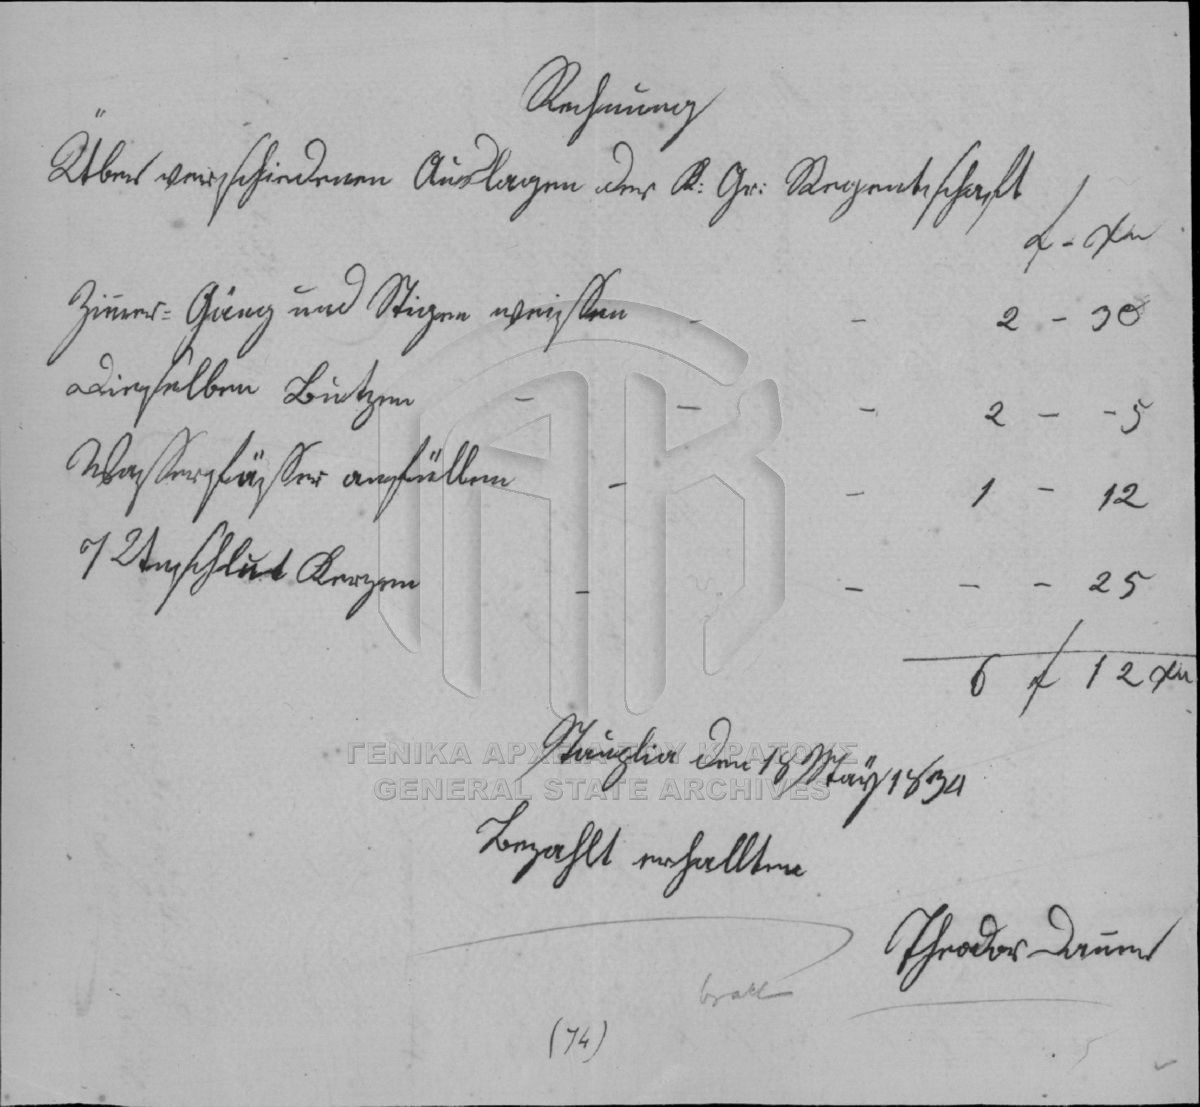 Rechnung
Über verschiedenen Auslagen der K: Gr: Regentschaft
f - Xr
Zimer= Gäng und Stigen weissen - - 2 - 30
Dieselben Butzen - - - 2 - - 5
Wasserfässer anfüllen - - 1 - 12
7 Unschlut Kerzen - - - - 25
6 f 12 Xr
ΓΕΝΙΚΑ ΑΡΧΕΙΑ ΤΟΥ ΚΡΑΤΟΥΣ
Nauplia den 18 Mäy 1834
GENERAL STATE ARCHIVES
Bezahlt erhallten
Theodor
(74)